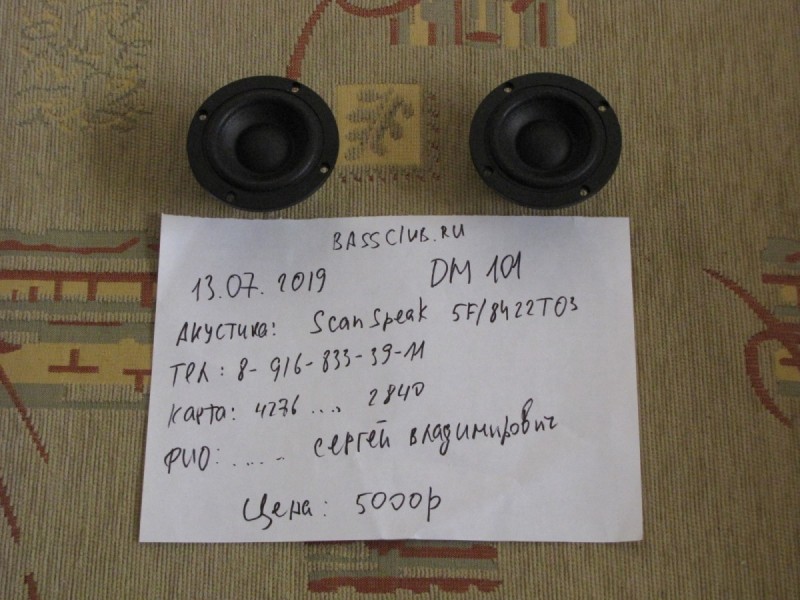 BASSClub.RU
13.07.2019 DM 101
Акустика: ScanSpeak 5F/8422T03
Тел: 8-916-833-39-11
Карта: 4276 .... 2840
ФИО: ..... Сергей Владимирович
Цена: 5000р